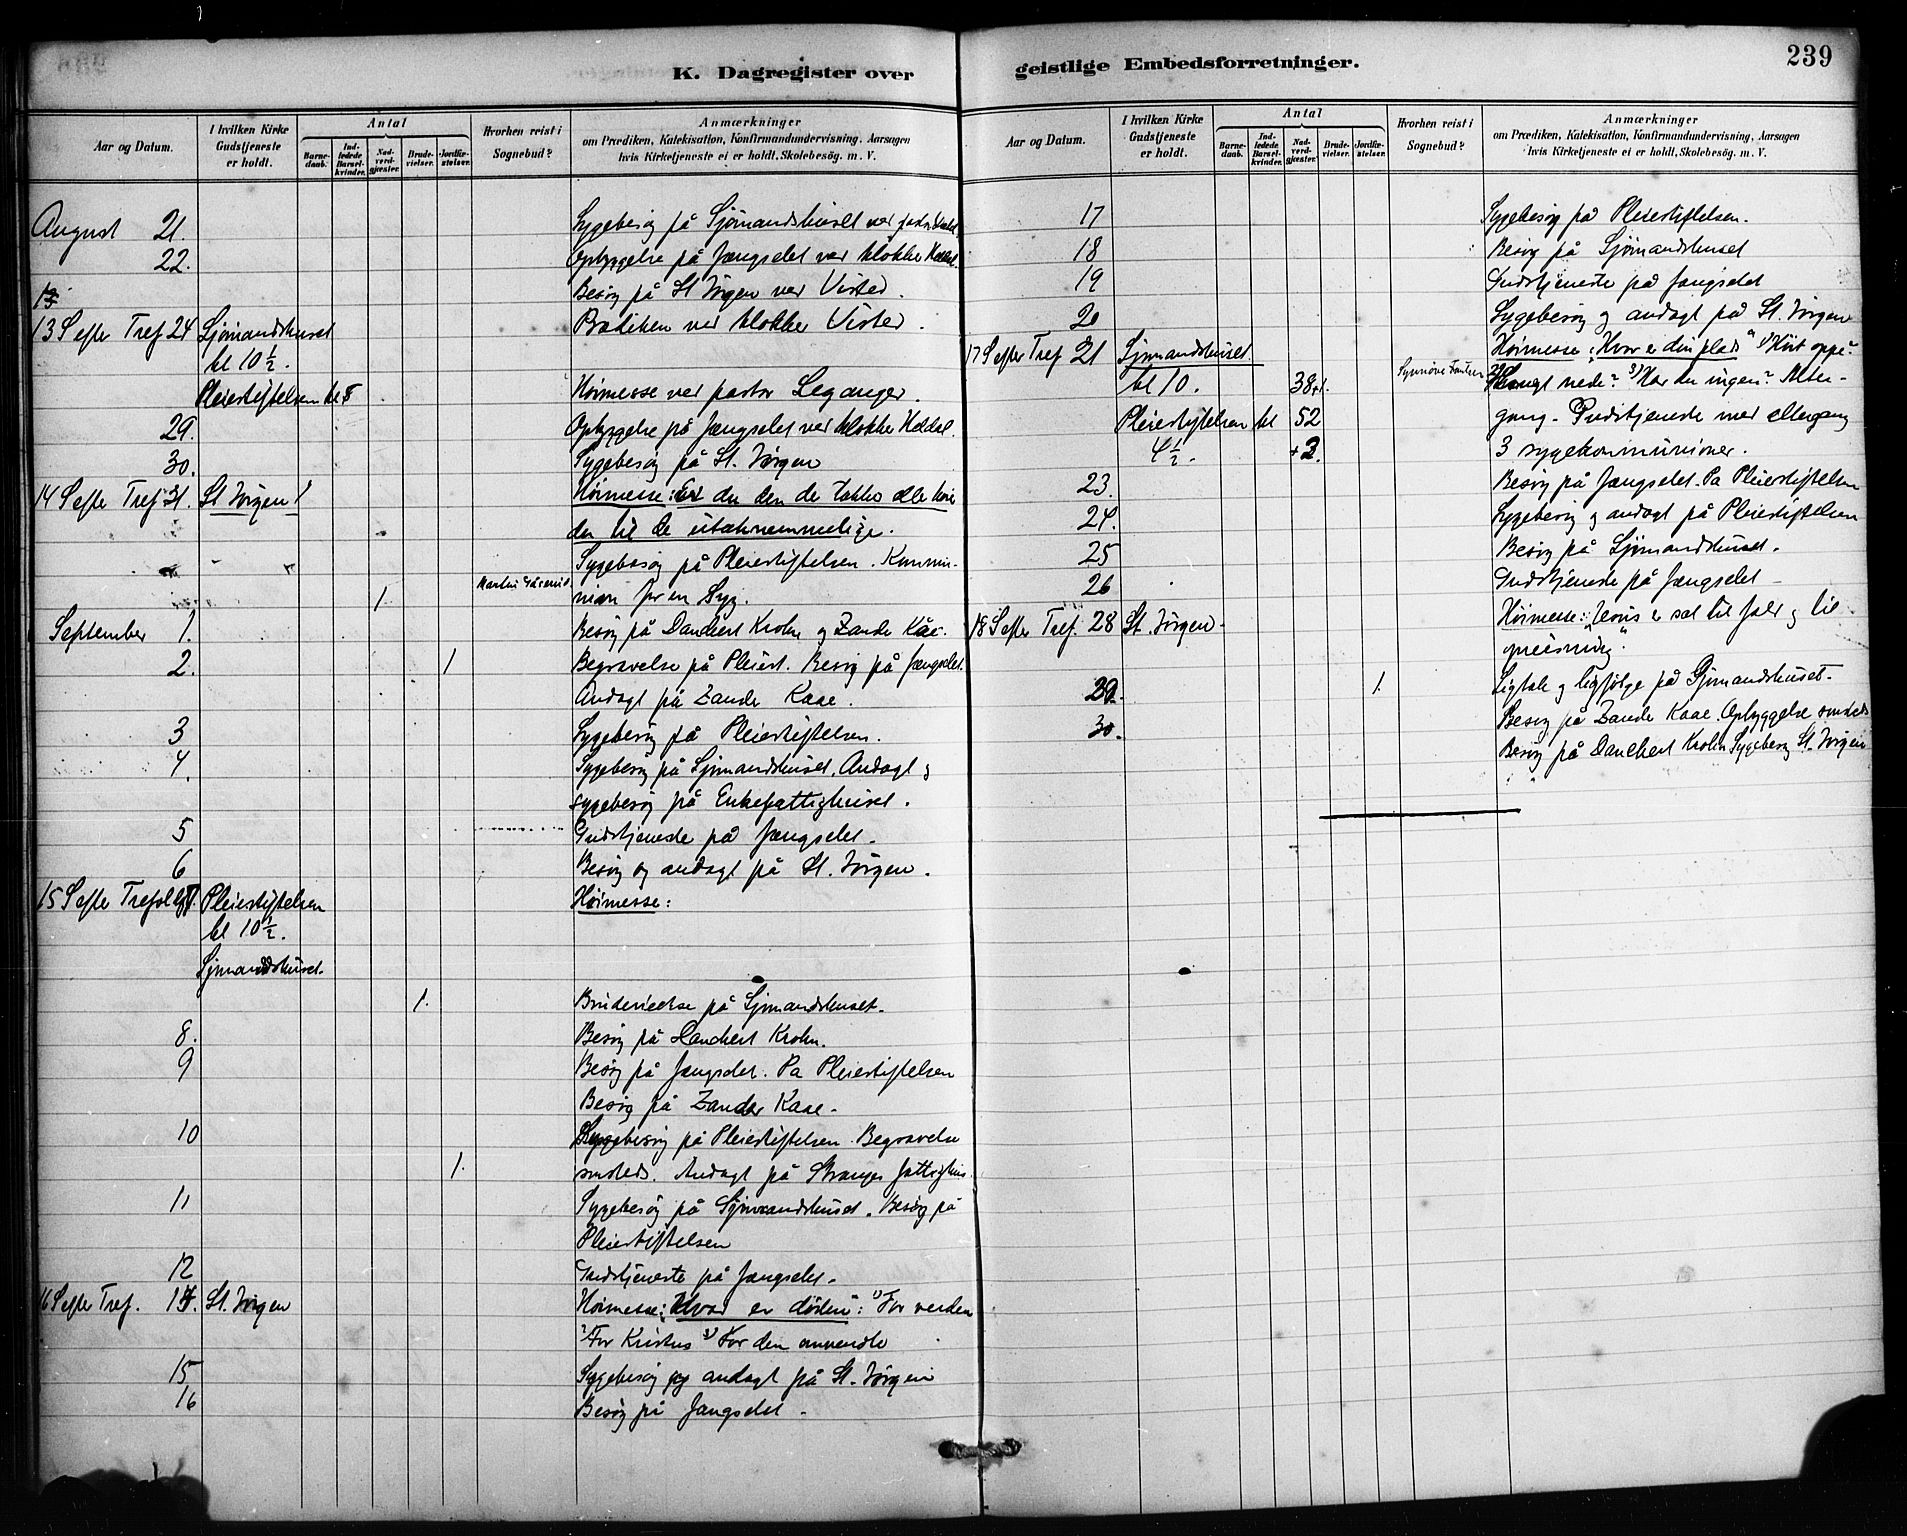 K. Dagregister over
geistlige Embedsforretninger.
239
Aar og Datum.
I hvilken Kirke Gudstjeneste er holdt.
Antal
Barnedaab.
Indledede Barselkvinder.
Nadverdgjæster.
Brudevielser.
Jordfæstelser.
Hvorhen reist i Sognebud?
Anmærkninger
om Prædiken, Katekisation, Konfirmandundervisning, Aarsagen
hvis Kirketjeneste ei er holdt, Skolebesög. m. V.
August 21. Sygebesög på Sjömandshuset ved
22. Opbyggelse på fængselet ved klokker Heldal.
Besög på St Jörgen ved Visted.
13 S efter Tref 24 Sjömandshuset Prædiken ved klokker Visted.
kl 10 1/2.
Pleiestiftelsen kl 5 Höimesse ved pastor Leganger.
29. Opbyggelse på fængselet ved klokker Heldal.
30. Sygebesög på St. Jörgen
14 S efter Tref 31. St Jörgen Höimesse: Er du den de takker eller hörer
du til de utaknemmelige.
Sygebesög på Pleiestiftelsen. Kommu-
1 Martin nion for en syg.
September 1. Besög på Danckert Krohn og Zander Kåe.
2. 1 Begravelse på Pleiest. Besög på fængselet.
Andagt på Zander Kaae.
3 Sygebesög på Pleiestiftelsen.
4. Sygebesög på Sjömandshuset. Andagt og
sygebesög på Enkefattighuset.
5 Gudstjeneste på fængselet.
6 Besög og andagt på St. Jörgen.
15 S efter Tref 7. Pleiestiftelsen Höimesse:
kl 10 1/2.
Sjömandshuset.
1. Brudevielse på Sjömandshuset.
8. Besög på Danckert Krohn.
9 Besög på fængselet. Pa Pleiestiftelsen
Besög på Zander Kaae.
10 Sygebesög på Pleiestiftelsen. Begravelse
1. smsteds. Andagt på Stranges fattighus.
11 Sygebesög på Sjömandshuset. Besög på
Pleiestiftelsen
12 Gudstjeneste på fængselet.
16 S efter Tref. 14. St. Jörgen Höimesse: Hvad er döden": 1) For verden
2) For Kristus 3) For den omvendte
15 Sygebesög og andagt på St. Jörgen
16 Besög på fængselet.
Aar og Datum.
I hvilken Kirke Gudstjeneste er holdt.
Antal
Barnedaab.
Indledede Barselkvinder.
Nadverdgjæster.
Brudevielser.
Jordfæstelser.
Hvorhen reist i Sognebud?
Anmærkninger
om Prædiken, Katekisation, Konfirmandundervisning, Aarsagen
hvis Kirketjeneste ei er holdt, Skolebesög. m. V.
17 Sygebesög på Pleiestiftelsen.
18 Besög på Sjömandshuset
19 Gudstjeneste på fængselet
20 Sygebesög og andagt på St. Jörgen
17 S efter Tref 21 Sjömandshuset. Höimesse: "Hvor er din plads" 1) Höit oppe?
kl 10. 38 Synnöve 2) Langt nede? 3) Har du ingen? Alter-
Pleiestiftelsen kl 52 gang. Gudstjeneste med altergang
4 1/2. +2. 3 sygekommunioner.
23. Besög på fængselet. Pa Pleiestiftelsen
24. Sygebesög og andagt på Pleiestiftelsen
25 Besög på Sjömandshuset.
26 Gudstjeneste på fængselet
18 S efter Tref. 28 St. Jörgen. Höimesse: "Jesus er sat til fald og til
opreisning".
29. 1. Ligtale og ligfölge på Sjömandshuset.
30. Besög på Zander Kaae. Opbyggelse smsteds
Besög på Danckert Krohn Sygebesög St. Jörgen